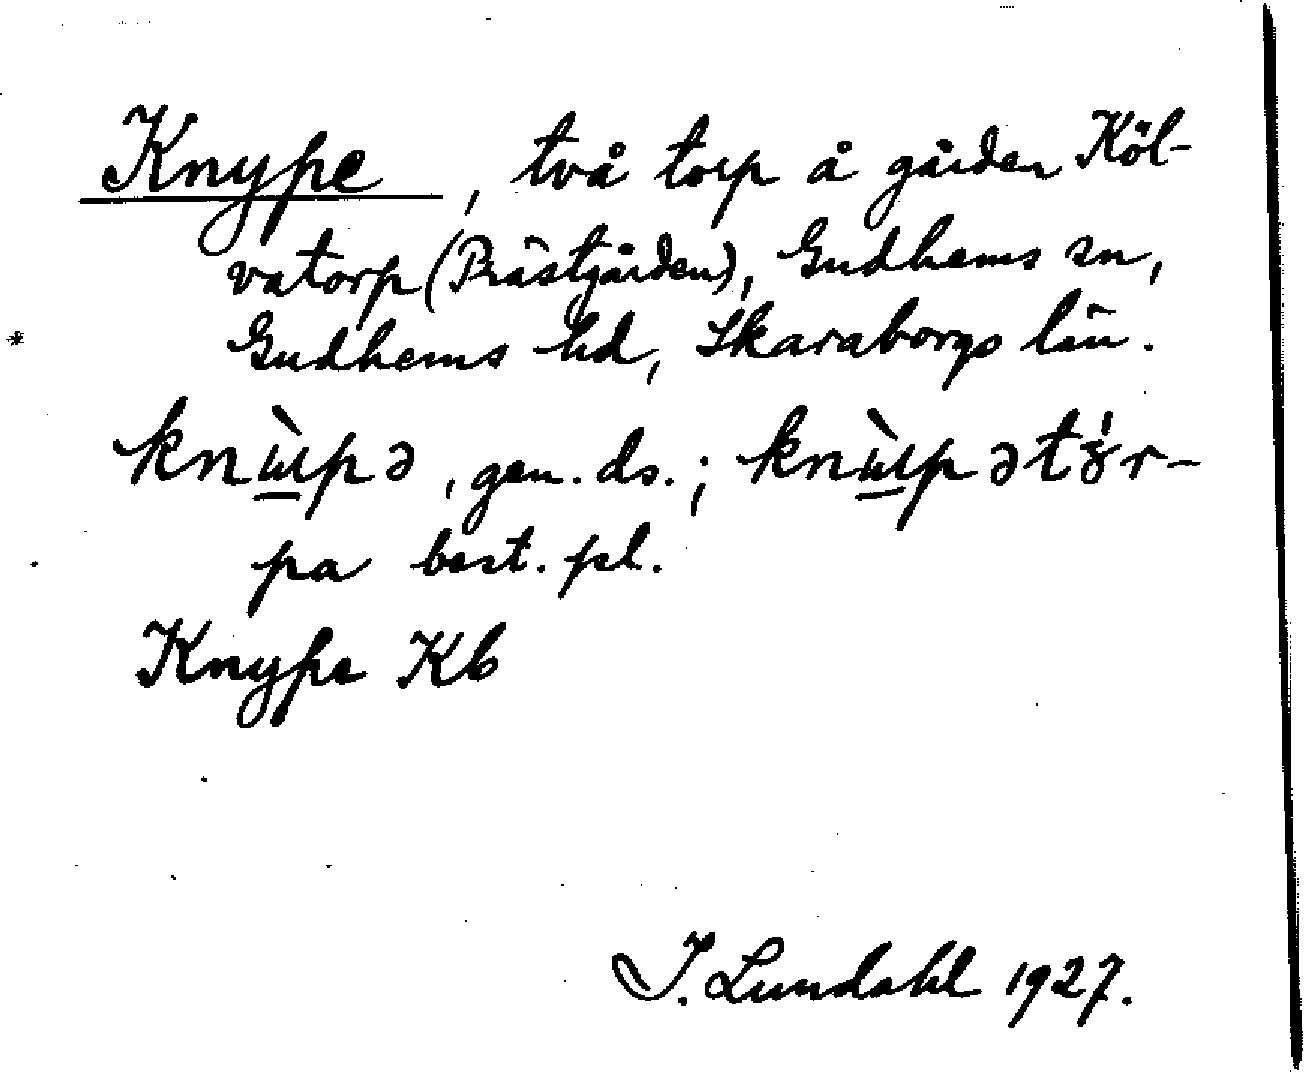 Knype, två torp å gården Köl-
vatorp (Prästgården), Gudhems sn,
Gudhems hd, Skaraborgs län.
knɯ̀pə, gen. ds.; knɯ̀pətɤ́r-
pa best. pl.
Knype Kb
I. Lundahl 1927.